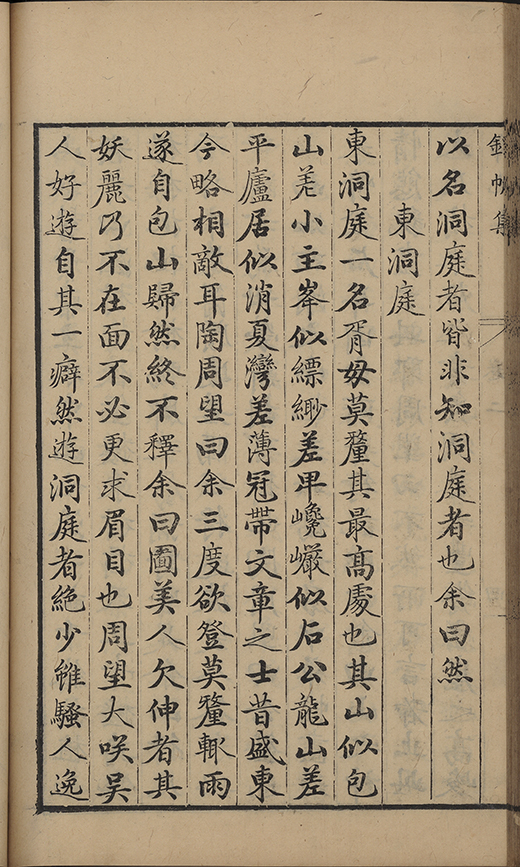 錦帆集
以名洞庭者皆非知洞庭者也余曰然
東洞庭
東洞庭一名胥毋莫釐其最高處也其山似包
山差小主峯似縹緲差卑巉巖似石公龍山差
平廬居似消夏灣差薄冠帶文章之士昔盛東
今略相敵耳陶周望曰余三度欲登莫釐輙雨
遂自包山歸然終不釋余曰圖美人欠伸者其
妖麗乃不在面不必更求眉目也周望大咲吳
人好遊自其一癖然遊洞庭者絶少雖騷人逸